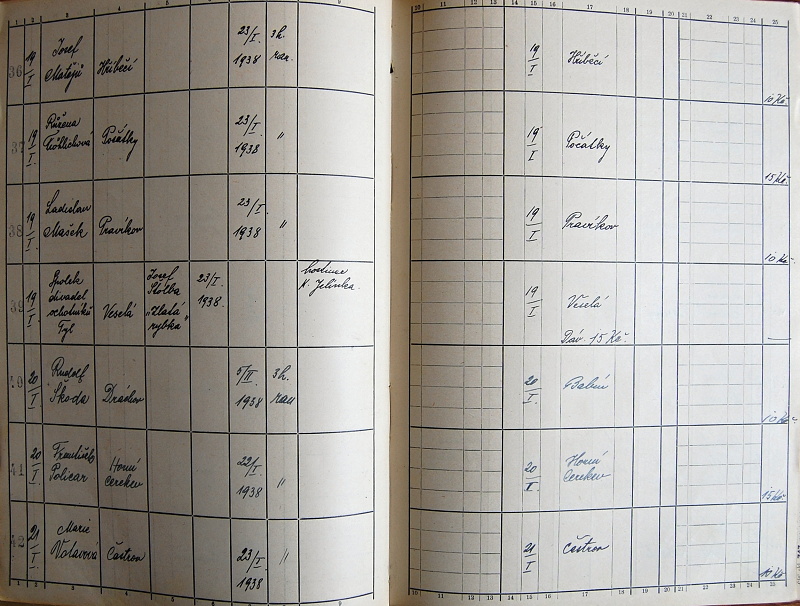 1 2 3 4 5 6 7 8 9
10 11 12 13 14 15 16 17 18 19 20 21 22 23 24 25
36 19/I Josef Matějů Hříběcí 23/I. 1938 3h. ran.
19/I Hříběcí 10 Kč
37 19/I. Růžena Počátky 23/I 1938 "
19/I Počátky 15 Kč.
38 19/I Ladislav Mašek Pravíkov 23/I. 1938 "
19/I Pravíkov 10 Kč.
39 19/I. Spolek divadel ochotníků Tyl Veselá Josef Skřba "Zlatá rybka" 23/I. 1938. hostinec K. Jelínka
19/I Veselá
Dáv. 15 Kč. —
40 20/I Rudolf Škoda 5/II 1938 3h. ran
20/I. 10 Kč.
41 20/I František Policar Horní Cerekev 22/I 1938 "
20/I. Horní Cerekev 15 Kč
42 21/I Marie Votavová Častrov 23/I 1938 "
21/I Častrov 10 Kč
10 11 12 13 14 15 16 17 18 19 20 21 22 23 24 25